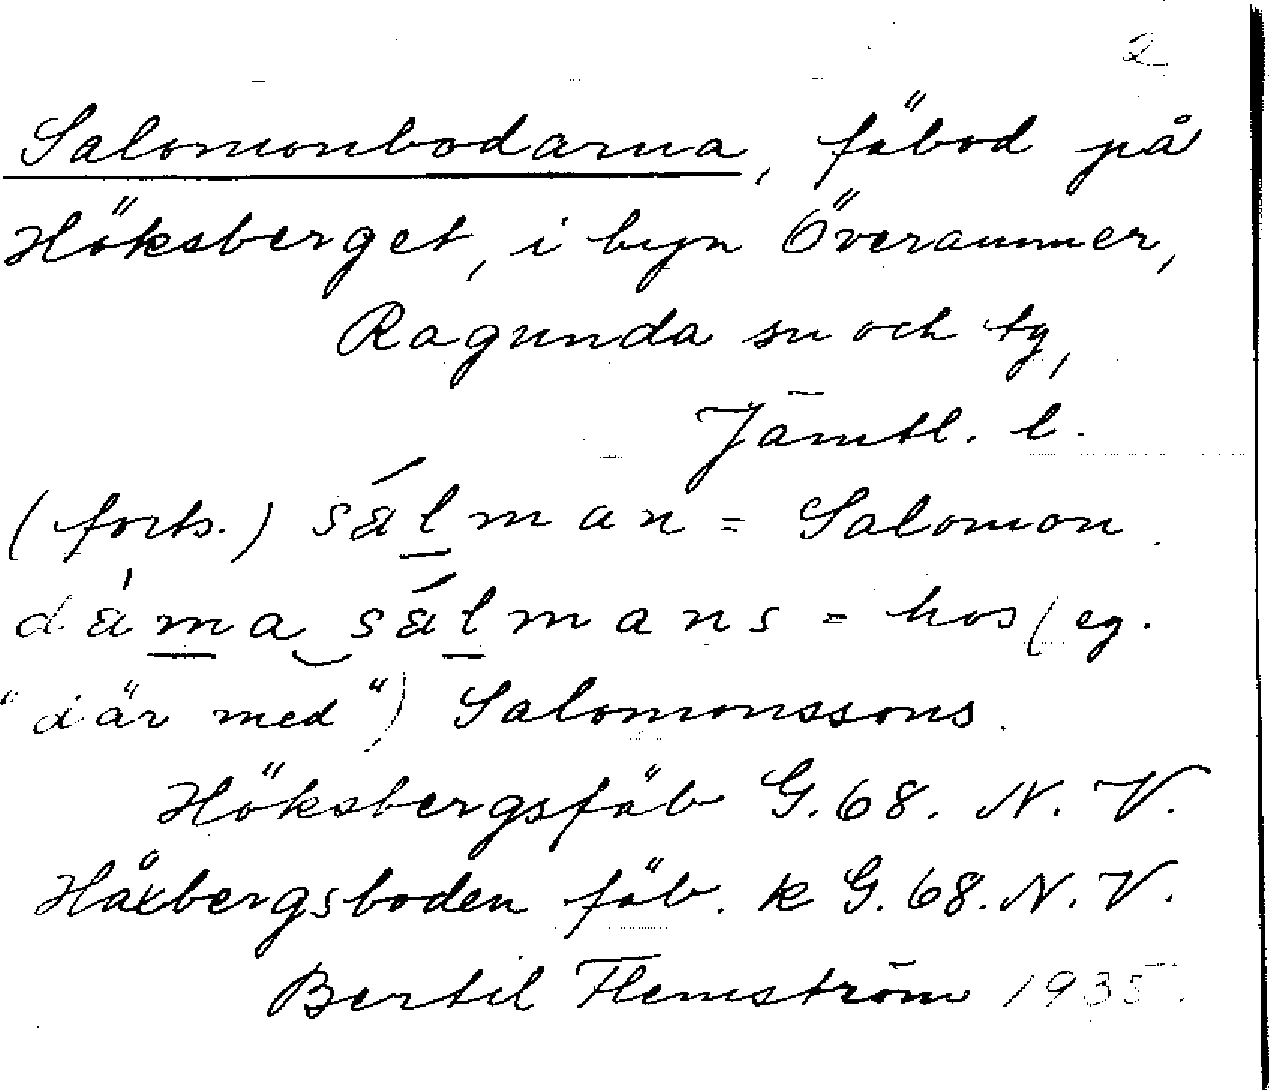 2
Salomonbodarna, fäbod på
Höksberget, i byn Överammer,
Ragunda sn och tg,
Jämtl. l.
(forts.) sálman = Salomon.
dáma sálmans = hos (eg.
"där med") Salomonssons.
Höksbergsfäb G.68. N. V.
Häxbergsboden fäb. k G. 68. N. V.
Bertil Flemström 1935.